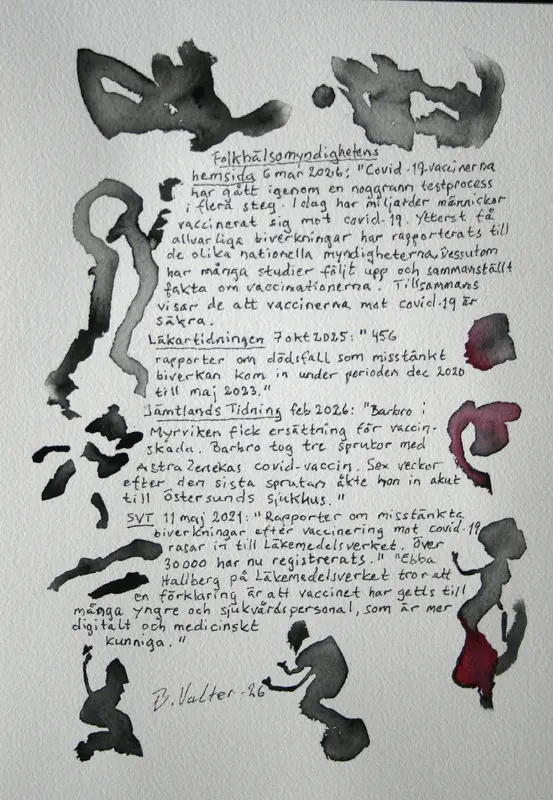 Folkhälsomyndighetens
hemsida 6 mar 2026: "Covid-19-vaccinerna
har gått igenom en noggrann testprocess
i flera steg. Idag har miljarder människor
vaccinerat sig mot covid-19. Ytterst få
allvarliga biverkningar har rapporterats till
de olika nationella myndigheterna. Dessutom
har många studier följt upp och sammanställt
fakta om vaccinationerna. Tillsammans
visar de att vaccinerna mot covid-19 är
säkra.
Läkartidningen 7 okt 2025: "456
rapporter om dödsfall som misstänkt
biverkan kom in under perioden dec 2020
till maj 2023."
Jämtlands Tidning feb 2026: "Barbro i
Myrviken fick ersättning för vaccin-
skada. Barbro tog tre sprutor med
Astra Zenekas covid-vaccin. Sex veckor
efter den sista sprutan åkte hon in akut
till Östersunds sjukhus."
SVT 11 maj 2021: "Rapporter om misstänkta
biverkningar efter vaccinering mot covid-19
rasar in till Läkemedelsverket. Över
30000 har nu registrerats." "Ebba
Hallberg på Läkemedelsverket tror att
en förklaring är att vaccinet har getts till
många yngre och sjukvårdspersonal, som är mer
digitalt och medicinskt
kunniga."
B. Valter -26